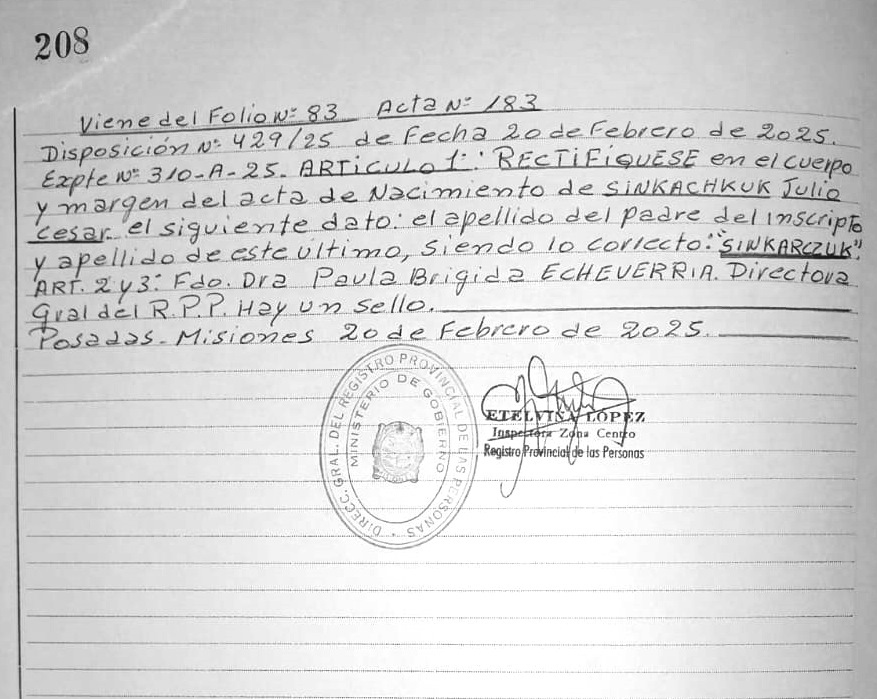 208
Viene del Folio Nº 83 Acta Nº 183
Disposición Nº 429/25 de Fecha 20 de Febrero de 2025.
Expte Nº 310-A-25. ARTICULO 1º: RECTIFIQUESE en el cuerpo
y margen del acta de Nacimiento de SINKACHKUK Julio
cesar el siguiente dato: el apellido del padre del inscripto
y apellido de este último, siendo lo correcto: "SINKARCZUK".
ART. 2 y 3: Fdo. Dra Paula Brigida ECHEVERRIA. Directora
Gral del R.P.P. Hay un sello.
Posadas - Misiones 20 de Febrero de 2025.
DIRECC. GRAL. DEL REGISTRO PROVINCIAL DE LAS PERSONAS
MINISTERIO DE GOBIERNO
ETELVINA LOPEZ
Inspectora Zona Centro
Registro Provincial de las Personas